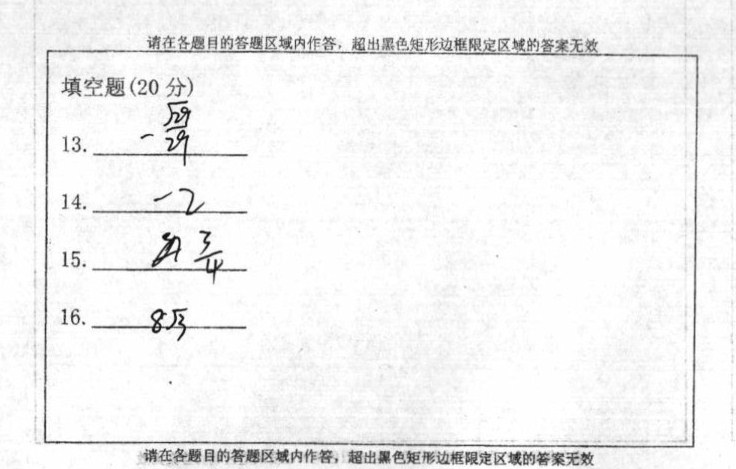 请在各题目的答题区域内作答，超出黑色矩形边框限定区域的答案无效
填空题(20 分)
13. -√29/29
14. -2
15. 3/4
16. 8√3
请在各题目的答题区域内作答，超出黑色矩形边框限定区域的答案无效